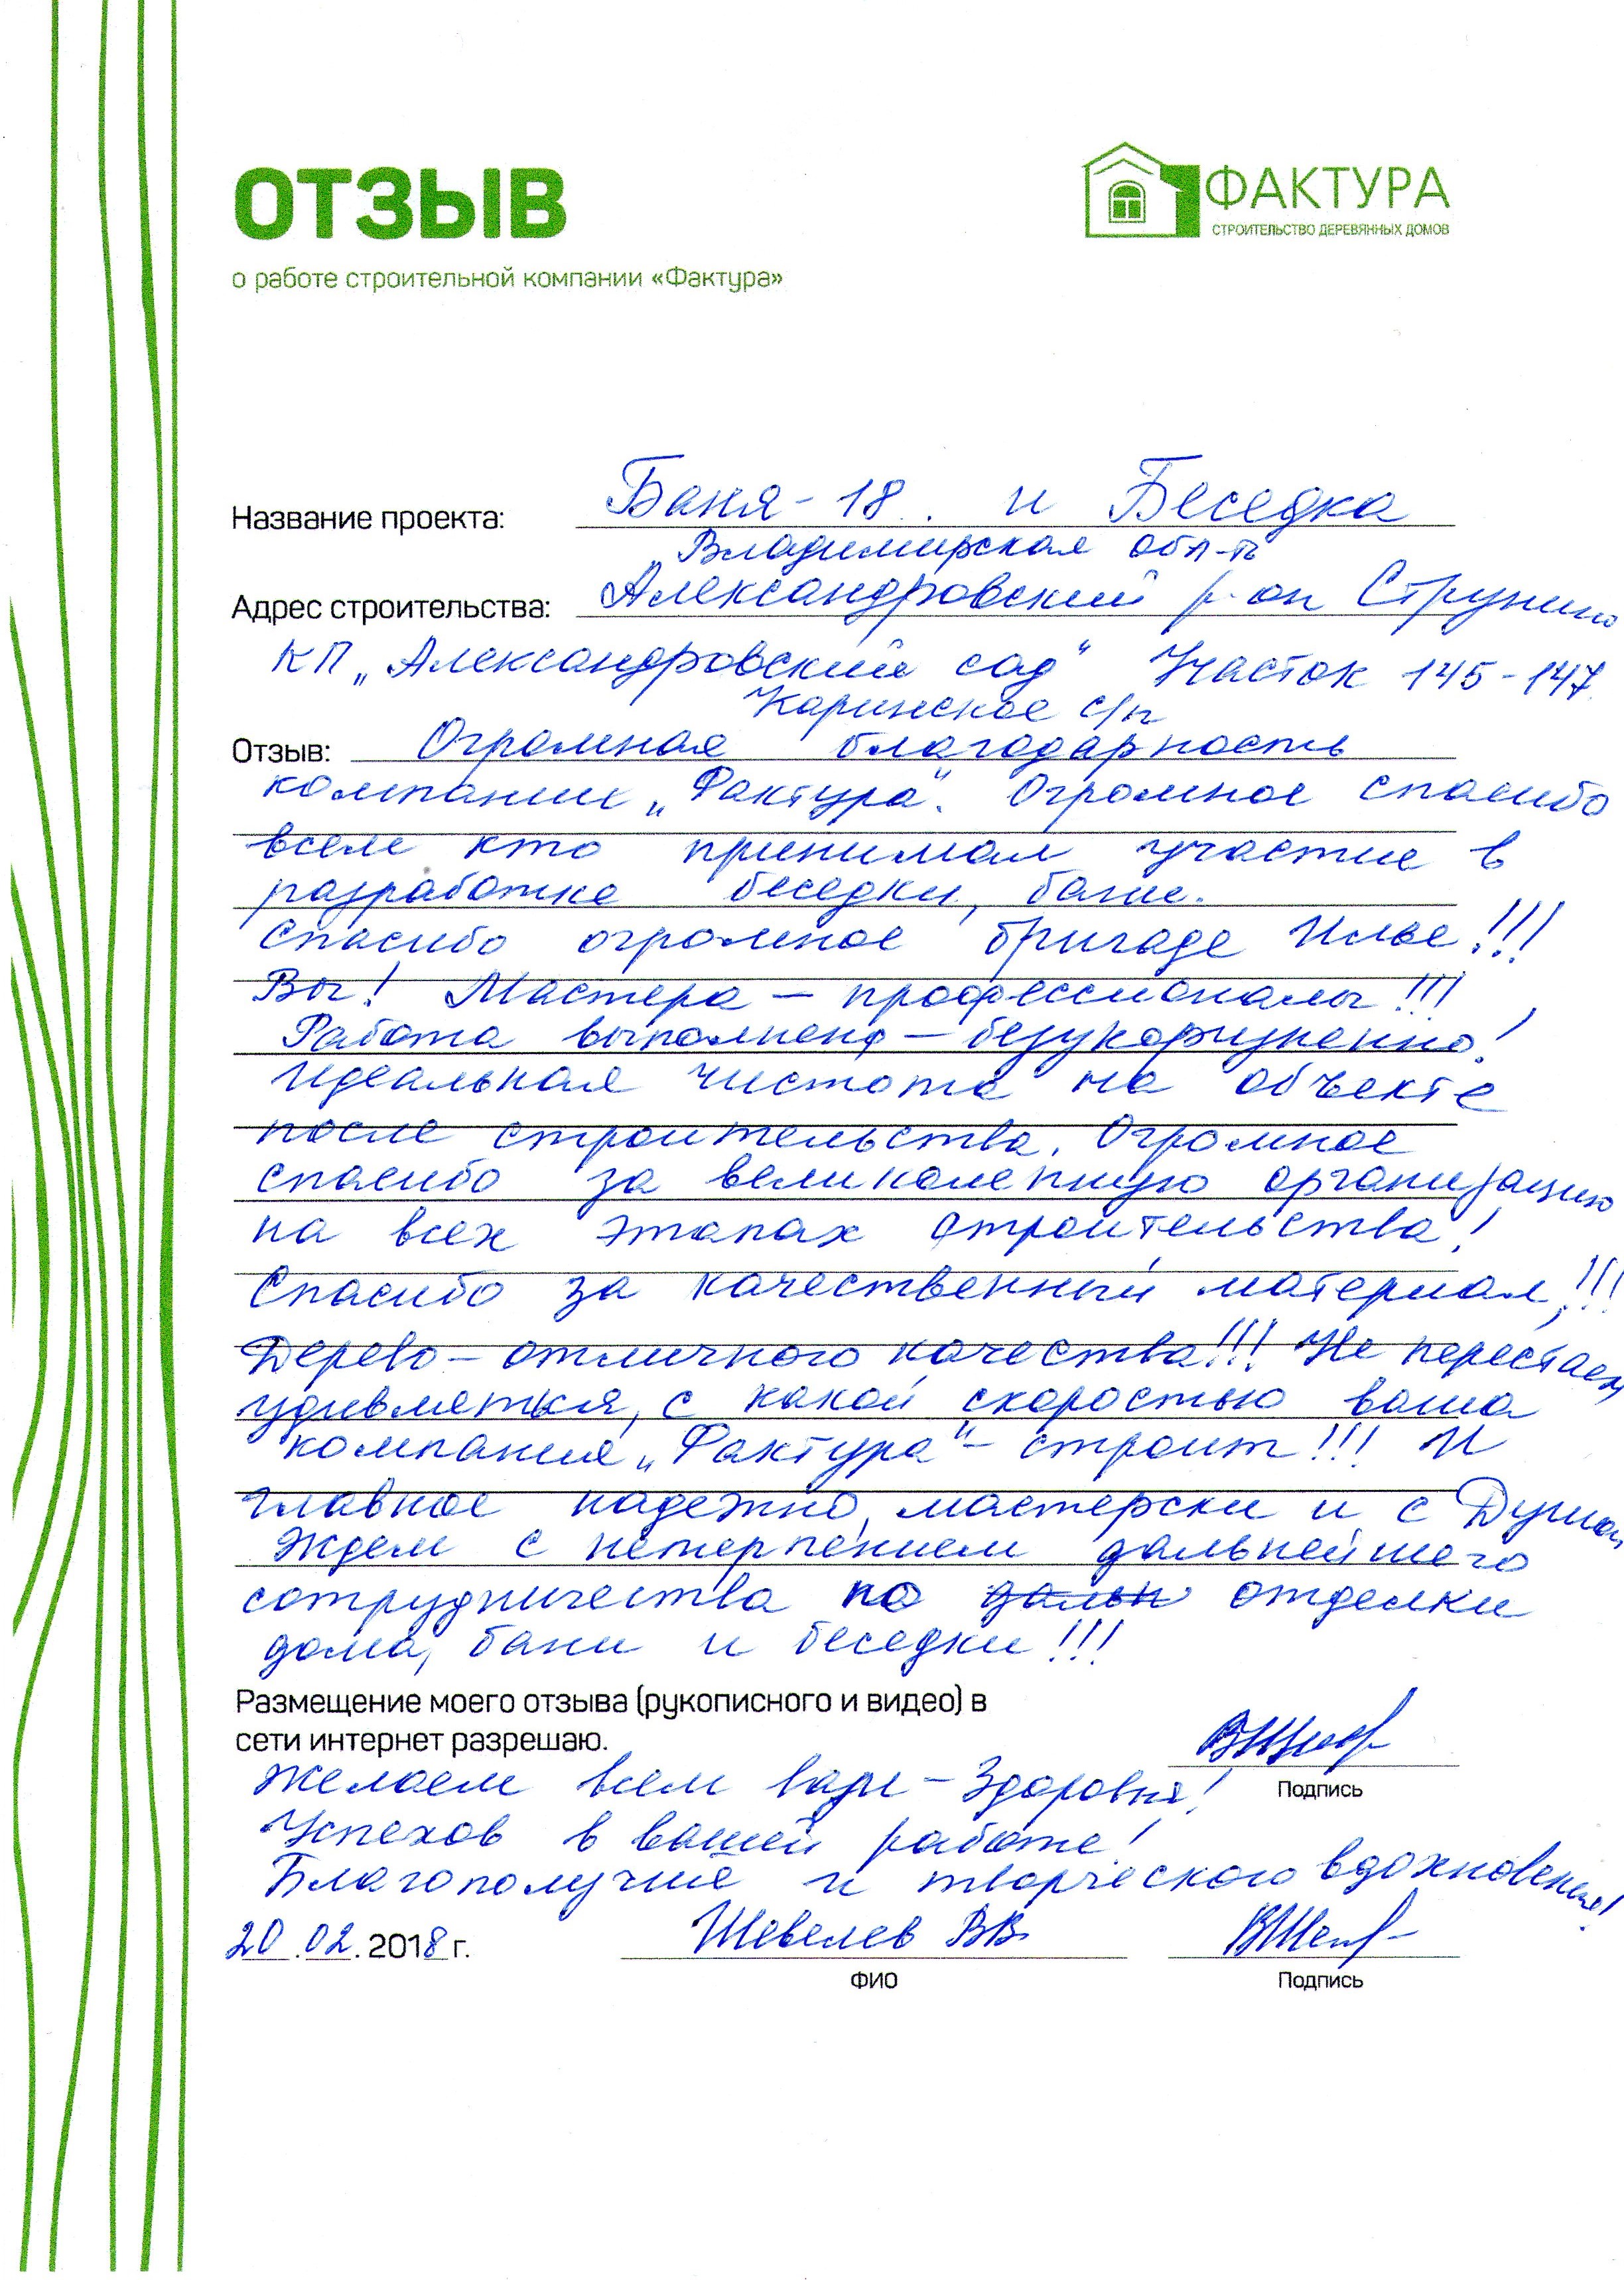 ОТЗЫВ
ФАКТУРА
СТРОИТЕЛЬСТВО ДЕРЕВЯННЫХ ДОМОВ
о работе строительной компании «Фактура»
Название проекта: Баня-18. и Беседка
Владимирская обл-ть
Адрес строительства: Александровский р-он Струнино
КП „Александровский сад" Участок 145-147
Каринское с/п
Отзыв: Огромная благодарность
компании „Фактура". Огромное спасибо
всем кто принимал участие в
разработке беседки, бани.
Спасибо огромное бригаде Ильи!!!
Вы! Мастера – профессионалы!!!
Работа выполнена – безукоризненно!
Идеальная чистота на объекте
после строительства. Огромное
спасибо за великолепную организацию
на всех этапах строительства!
Спасибо за качественный материал!!!
Дерево – отличного качества!!! Не перестаем
удивляться, с какой скоростью ваша
компания „Фактура" – строит!!! И
главное надежно, мастерски и с Душой
Ждем с нетерпением дальнейшего
сотрудничества по дальн отделки
дома, бани и беседки!!!
Размещение моего отзыва (рукописного и видео) в
сети интернет разрешаю.
Подпись
Желаем всем вам – Здоровья!
Успехов в вашей работе!
Благополучия и творческого вдохновения!
20.02.2018 г. Шевелев ВВ.
ФИО Подпись